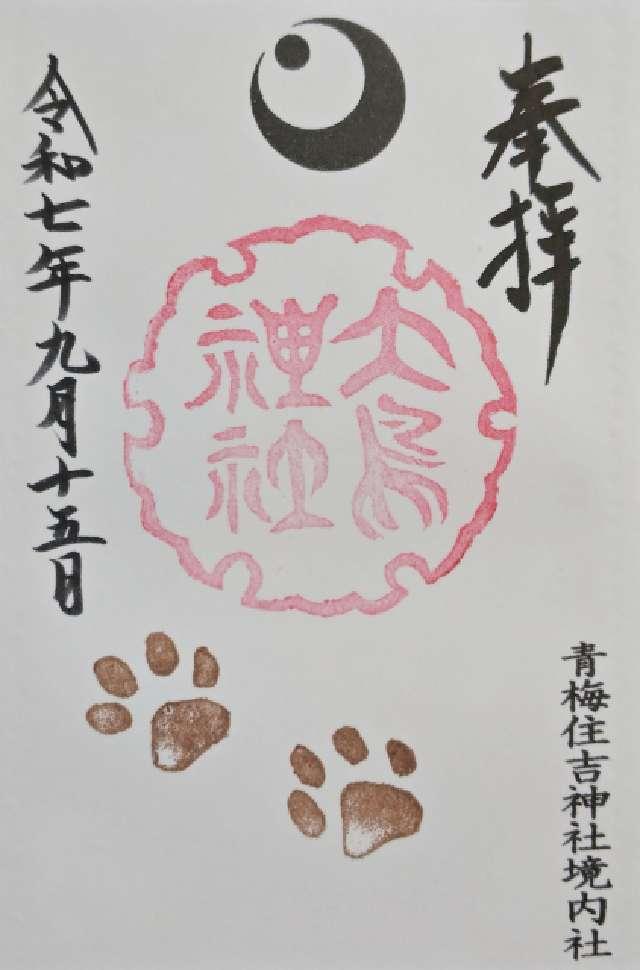 奉拝
大鳥
神社
令和七年九月十五日
青梅住吉神社境内社